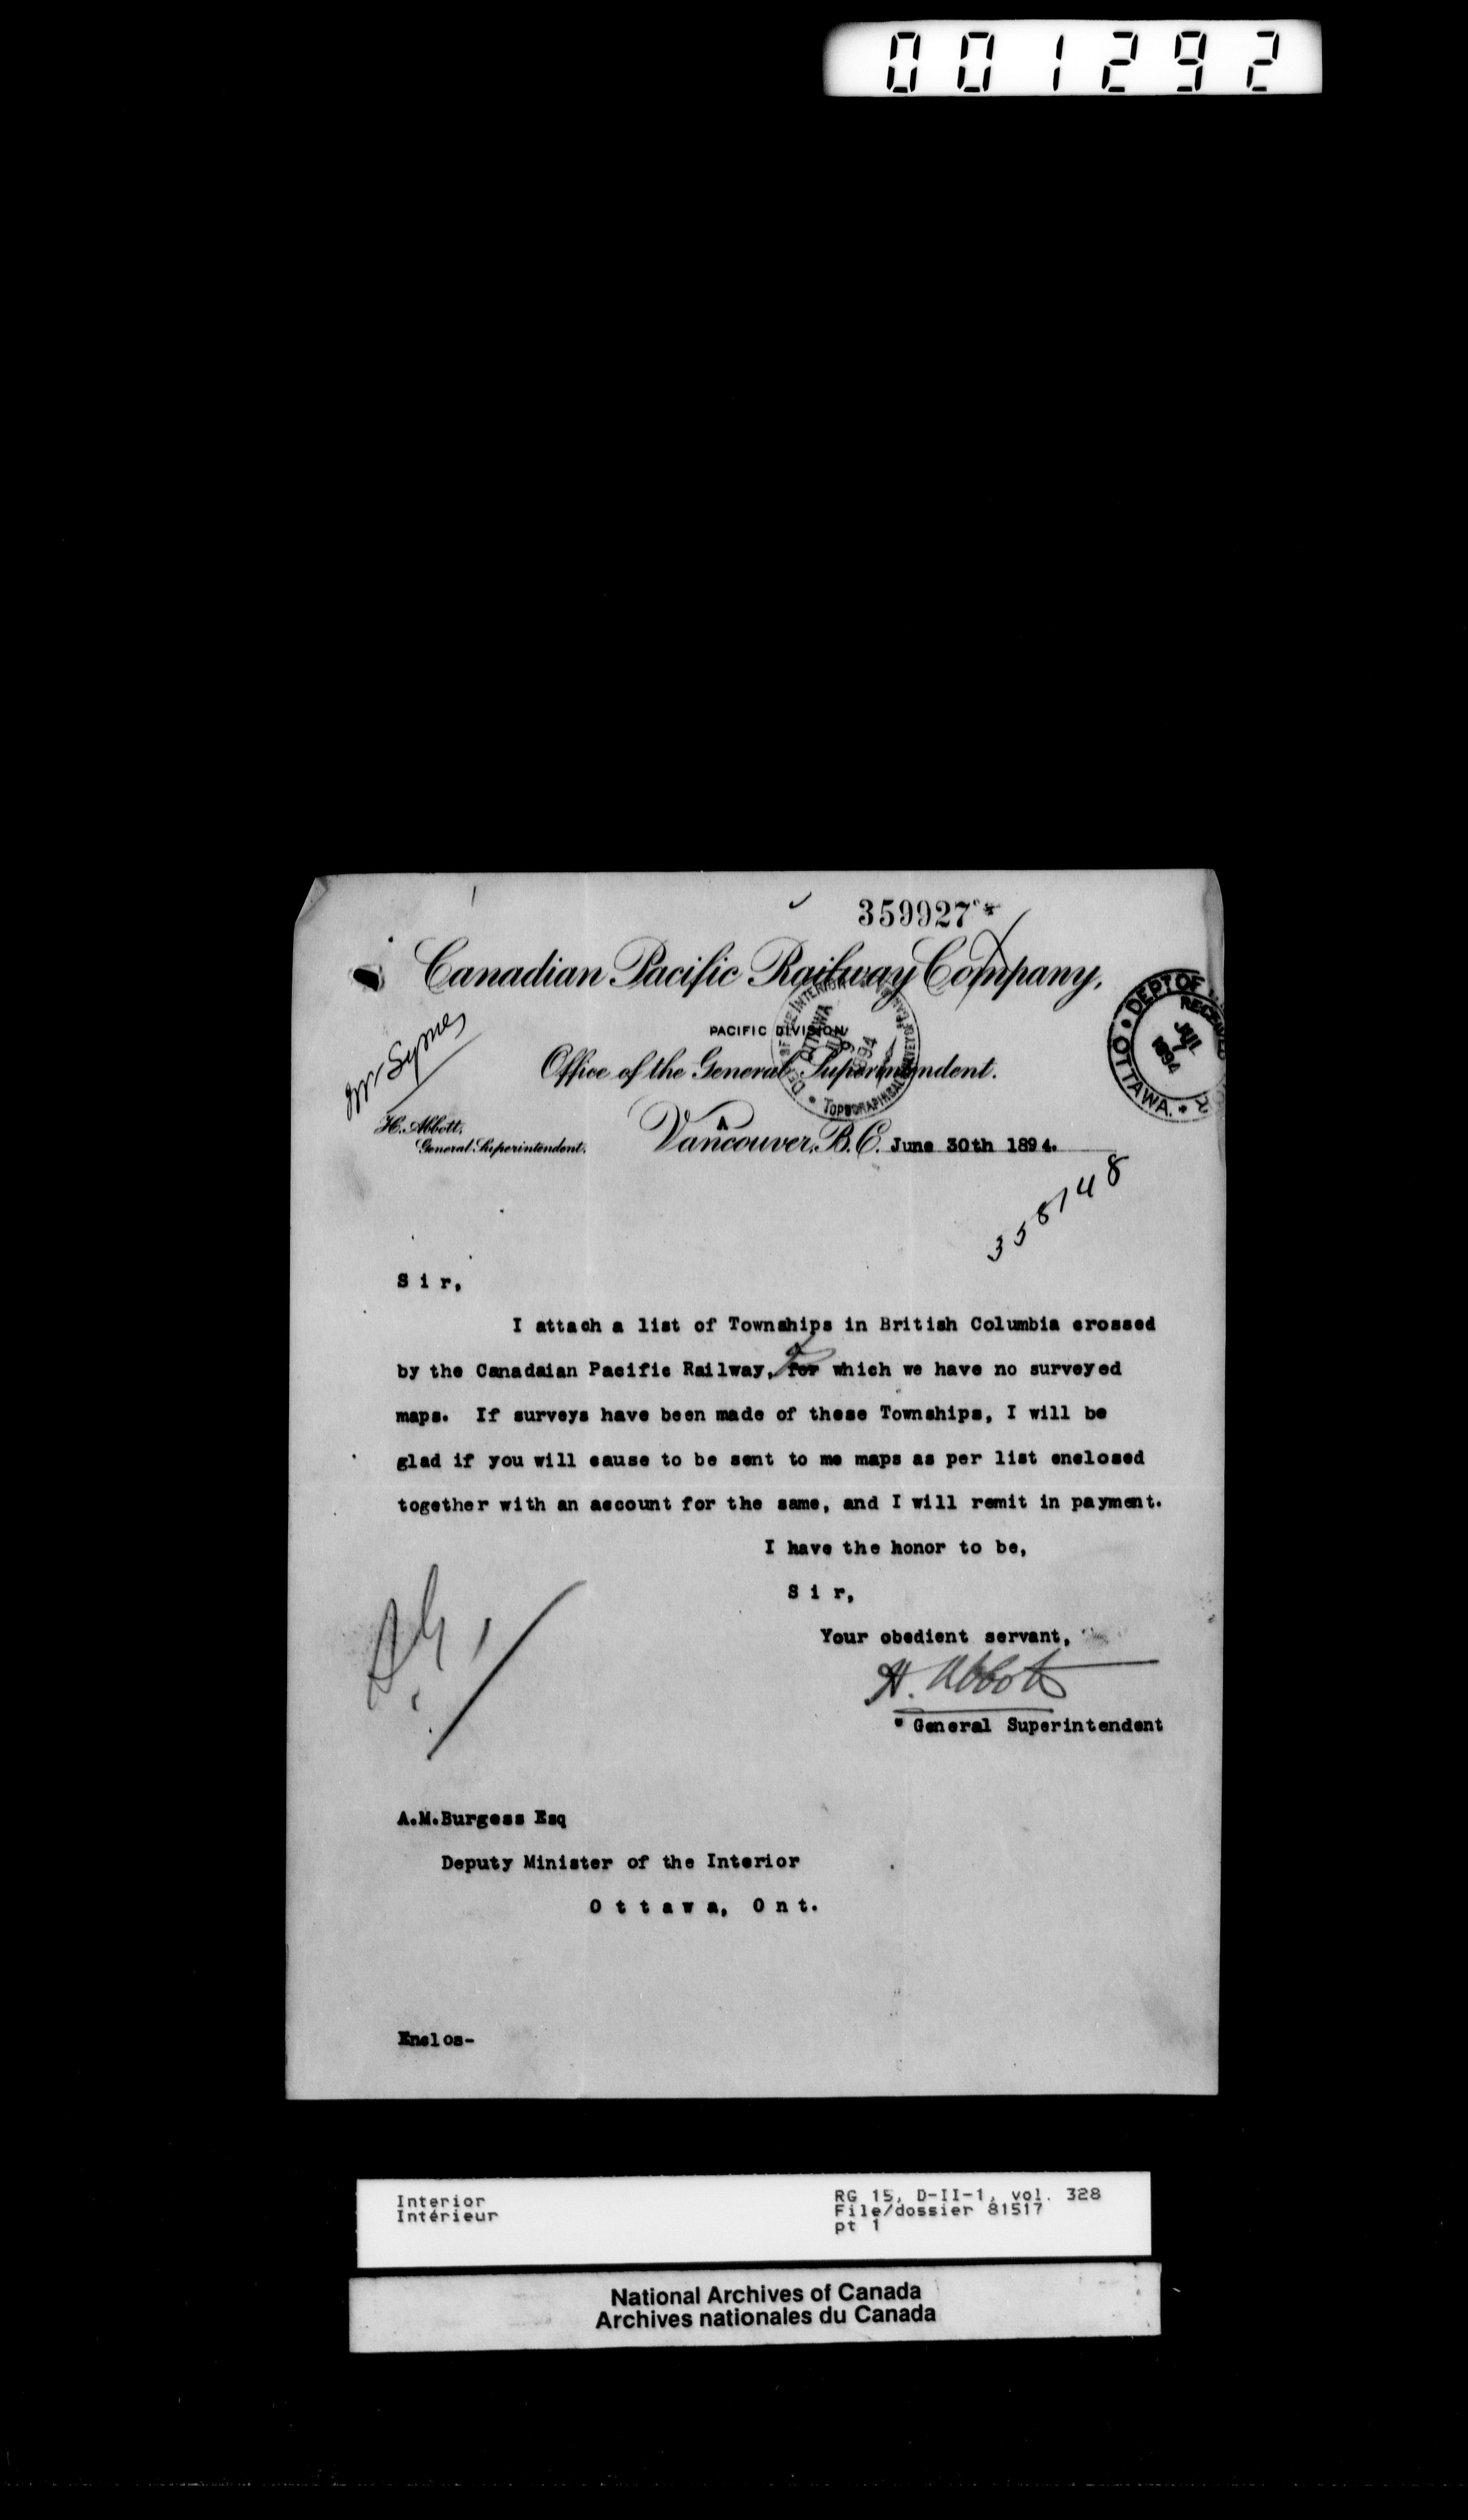 001292
359927
Canadian Pacific Railway Company,
PACIFIC DIVISION
Office of the General Superintendent.
Mr Symes
H. Abbott,
General Superintendent.
Vancouver, B.C. June 30th 1894.
DEPT OF THE INTERIOR OTTAWA 1894 TOPOGRAPHICAL SURVEYS
DEPT OF RECEIVED JUL 7 1894 OTTAWA.
358748
S i r,
I attach a list of Townships in British Columbia crossed
by the Canadaian Pacific Railway, of for which we have no surveyed
maps. If surveys have been made of these Townships, I will be
glad if you will cause to be sent to me maps as per list enclosed
together with an account for the same, and I will remit in payment.
I have the honor to be,
S i r,
Your obedient servant,
H. Abbott
General Superintendent
A.M.Burgess Esq
Deputy Minister of the Interior
O t t a w a, O n t.
Enclos-
Interior
Intérieur
RG 15, D-II-1, vol. 328
File/dossier 81517
pt 1
National Archives of Canada
Archives nationales du Canada